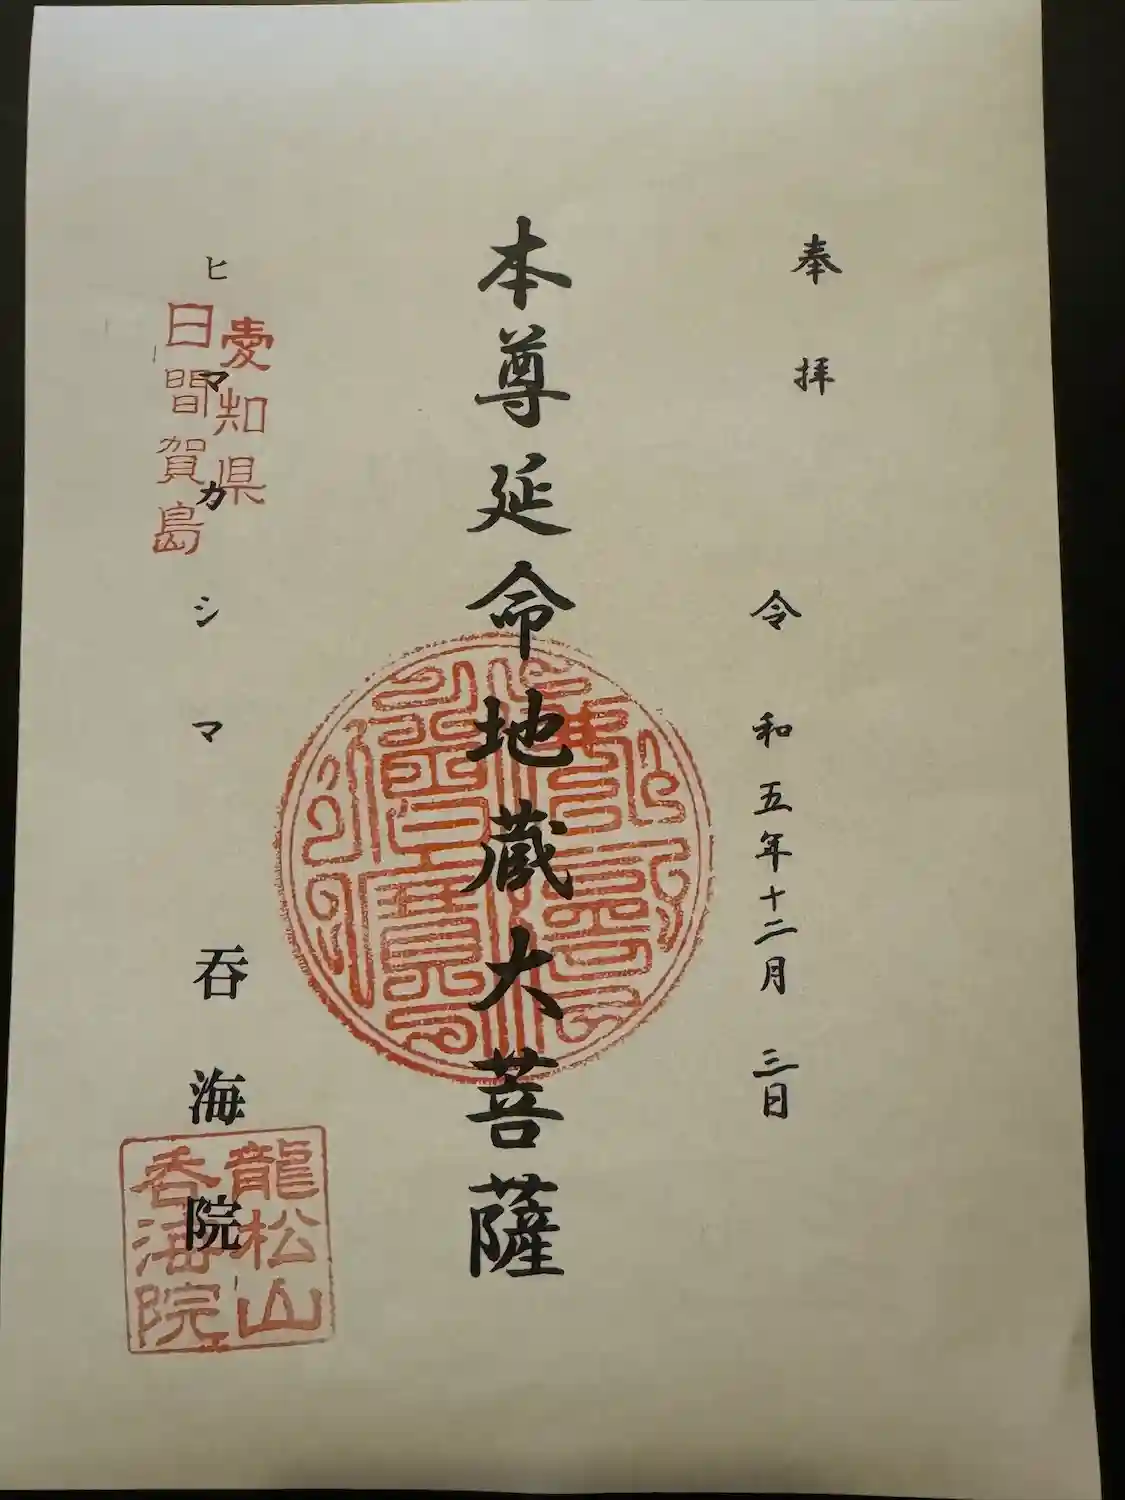 奉拝
令和五年十二月三日
本尊延命地蔵大菩薩
愛知県
日間賀島
ヒマカシマ
呑海院
龍松山
呑海院